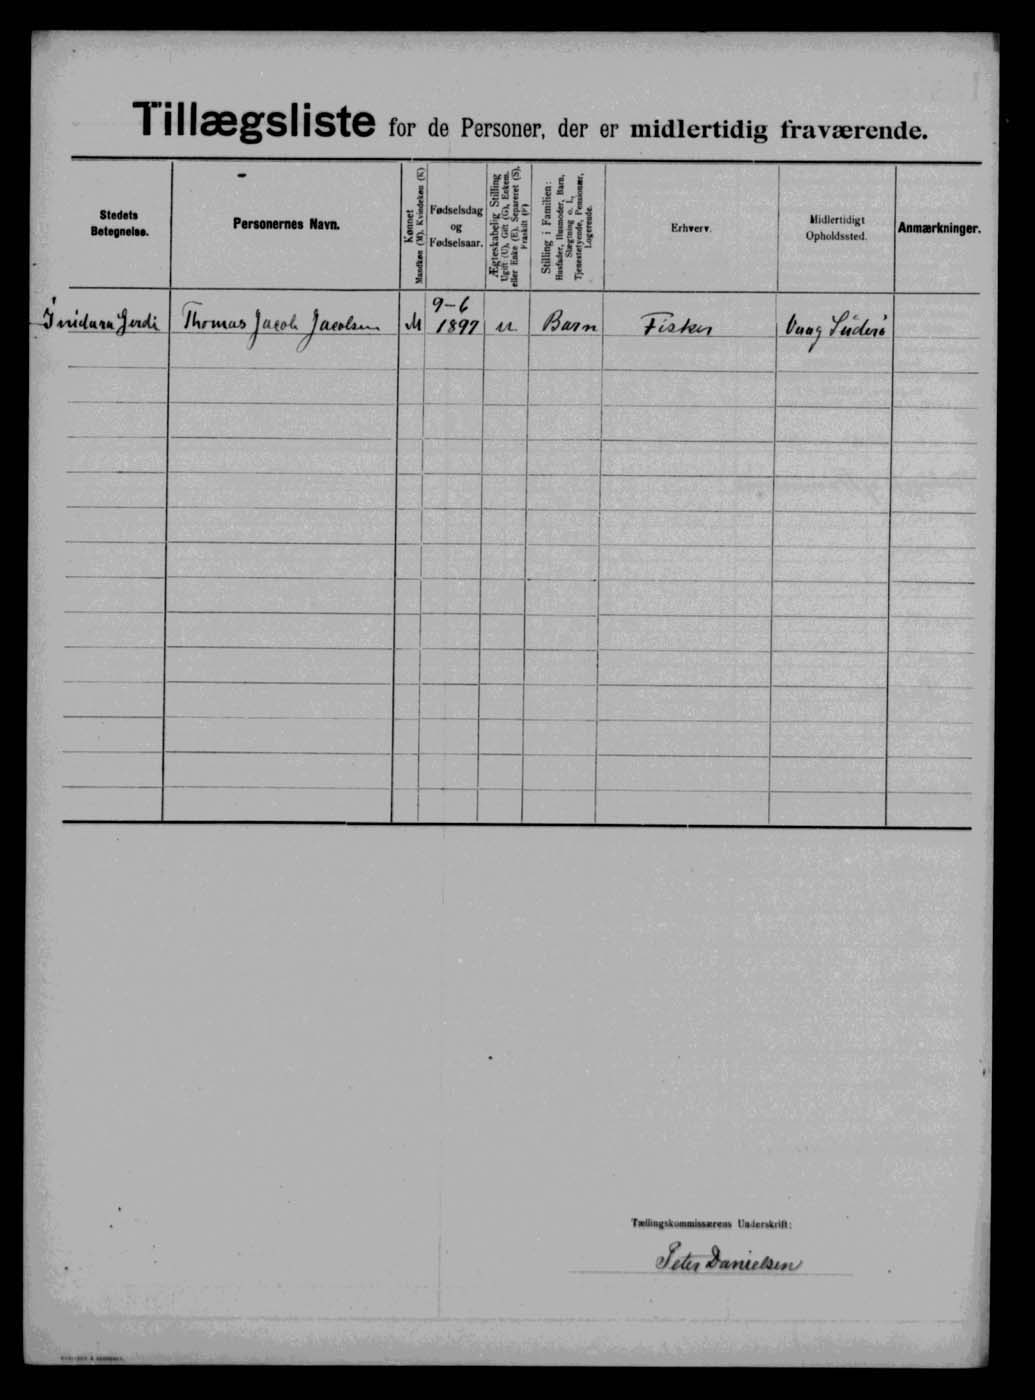 Tillægsliste for de Personer, der er midlertidig fraværende.
Stedets Betegnelse.
Personernes Navn.
Kønnet
Mandkøn (M). Kvindekøn (K)
Fødselsdag
og
Fødselsaar.
Ægteskabelig Stilling
Ugift (U), Gift (G), Enkem.
eller Enke (E). Separeret (S).
Fraskilt (F)
Stilling i Familien:
Husfader, Husmoder, Barn,
Slægtning o. l.,
Tjenestetyende, Pensionær,
Logerende.
Erhverv.
Midlertidigt
Opholdssted.
Anmærkninger.
Thomas Jacob Jacobsen M 9-6 1897 u Barn Fisker Vaag Süderö
Tællingskommissærens Underskrift:
Peter Danielsen